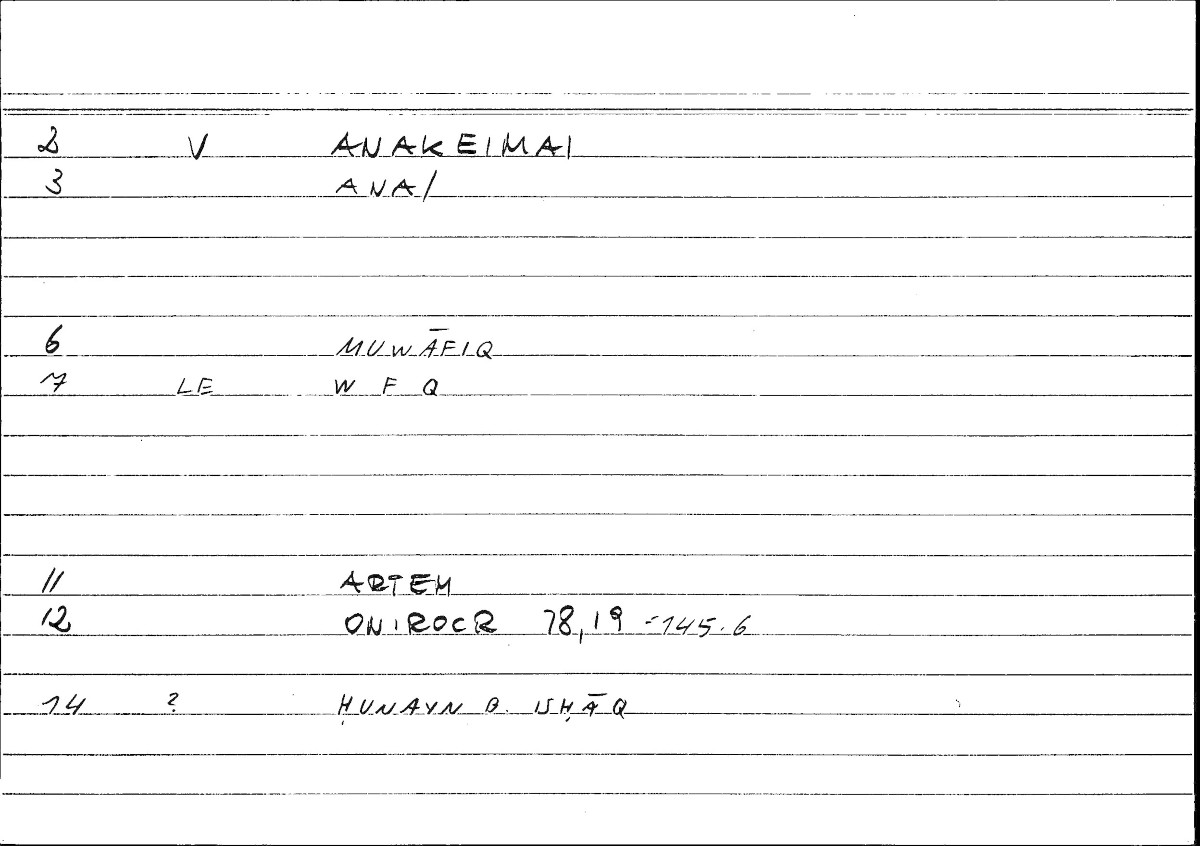 2 V ANAKEIMAI
3 ANA/
6 MUWĀFIQ
7 LE W F Q
11 ARTEM
12 ONIROCR 78,19 =145.6
14 ? ḤUNAYN B. ISḤĀQ